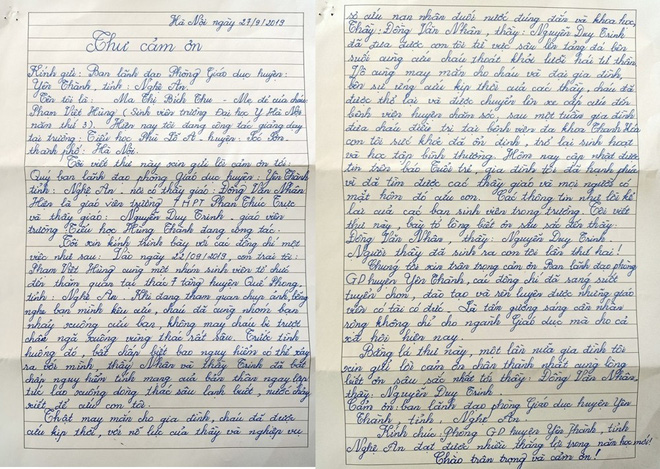 Hà Nội ngày 27/9/2019
Thư cảm ơn
Kính gửi: Ban lãnh đạo Phòng Giáo dục huyện:
Yên Thành, tỉnh: Nghệ An.
Tên tôi là: Ma Thị Bích Thu - Mẹ đẻ của cháu
Phạm Việt Hùng (Sinh viên trường Đại học Y Hà Nội
năm thứ 3). Hiện nay tôi đang công tác giảng dạy
tại trường: Tiểu học Phù Lỗ A. huyện: Sóc Sơn,
thành phố: Hà Nội.
Tôi viết thư này xin gửi lời cảm ơn tới:
Quý ban lãnh đạo phòng Giáo dục huyện: Yên Thành
tỉnh: Nghệ An. nơi có thầy giáo: Đồng Văn Nhân
Hiện là giáo viên trường THPT Phan Thúc Trực
và thầy giáo: Nguyễn Duy Trinh. giáo viên
trường Tiểu học Hùng Thành đang công tác.
Tôi xin kính trình bày với các đồng chí một
việc như sau: Vào ngày 22/09/2019, con trai tôi:
Phạm Việt Hùng cùng một nhóm sinh viên tổ chức
đến thăm quan tại thác 7 tầng huyện Quế Phong.
tỉnh: Nghệ An. Khi đang tham quan chụp ảnh, bỗng
nghe bạn mình kêu cứu, cháu đã cùng nhóm bạn
nhảy xuống cứu bạn, không may cháu bị trượt
chân ngã xuống vùng thác rất sâu. Trước tình
huống đó, bất chấp biết bao nguy hiểm có thể xảy
ra với mình, thầy Nhân và thầy Trinh đã bất
chấp nguy hiểm tính mạng của bản thân ngay lập
tức lao xuống dòng thác sâu lạnh buốt, nước chảy
xiết để cứu con tôi.
Thật may mắn cho gia đình, cháu đã được
cứu kịp thời, với nỗ lực của thầy và nghiệp vụ
sơ cứu nạn nhân đuối nước đúng đắn và khoa học,
Thầy: Đồng Văn Nhân, thầy: Nguyễn Duy Trinh
đã đưa được con tôi từ vực sâu lên tảng đá bên
suối cùng cứu cháu thoát khỏi lưỡi hái tử thần.
Vô cùng may mắn cho cháu và đại gia đình,
bên sự ứng cứu kịp thời của các thầy, cháu đã
được thở lại và được chuyển lên xe cấp cứu đến
bệnh viện huyện chăm sóc, sau một tuần gia đình
đưa cháu điều trị tại bệnh viện đa khoa Thanh Hóa
con tôi sức khỏe đã ổn định, trở lại sinh hoạt
và học tập bình thường. Hôm nay cập nhật được
tin trên báo Tuổi trẻ, gia đình tôi đã hạnh phúc
vì đã tìm được các thầy giáo và mọi người có
mặt hôm đó cứu con. Các thông tin như lời kể
lại của các bạn sinh viên trong trường. Tôi viết
thư này, bày tỏ lòng biết ơn sâu sắc đến thầy:
Đồng Văn Nhân, thầy: Nguyễn Duy Trinh.
Người thầy đã sinh ra con tôi lần thứ hai!
Chúng tôi xin trân trọng cảm ơn Ban lãnh đạo phòng
GD huyện Yên Thành, các đồng chí đã sáng suốt
tuyển chọn, đào tạo và rèn luyện được những giáo
viên có tài có đức. Là tấm gương sáng cần nhân
rộng không chỉ cho ngành Giáo dục mà cho cả
xã hội hiện nay.
Bằng lá thư này, một lần nữa gia đình tôi
xin gửi lời cảm ơn chân thành nhất cùng lòng
biết ơn sâu sắc nhất tới thầy: Đồng Văn Nhân,
thầy: Nguyễn Duy Trinh.
Cảm ơn ban lãnh đạo phòng Giáo dục huyện Yên
Thành tỉnh, Nghệ An.
Kính chúc Phòng GD huyện Yên Thành, tỉnh
Nghệ An đạt được nhiều thắng lợi trong năm học mới!
Chào trân trọng và cảm ơn!